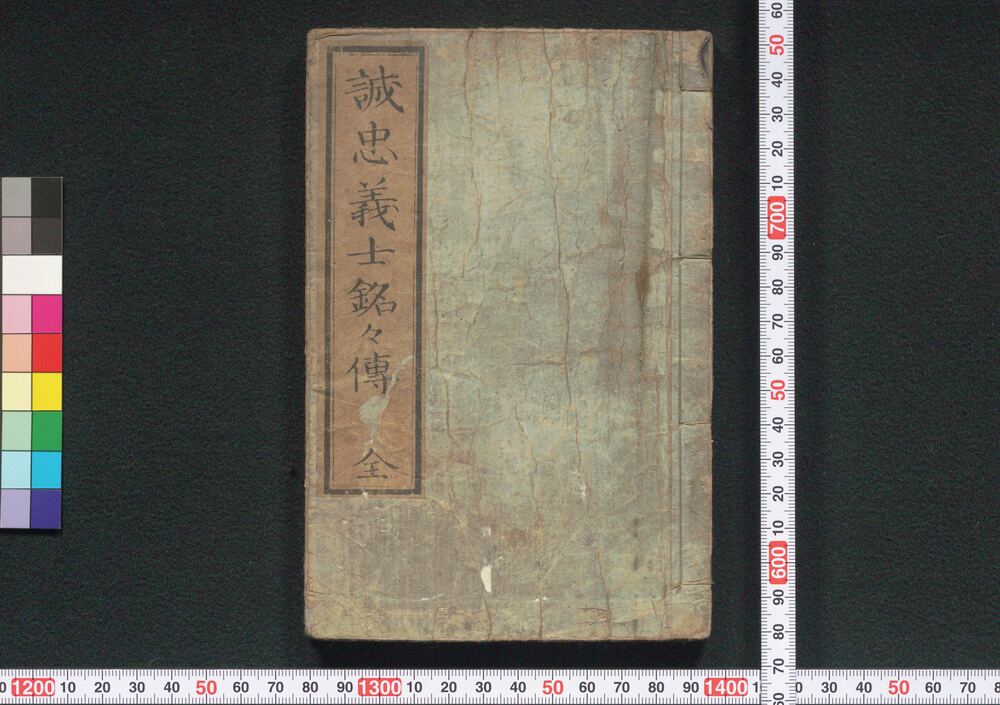 誠忠義士銘々傳 全
60
50
40
30
20
10
700
90
80
70
60
50
40
30
20
10
600
90
80
70
60
0 1200 10 20 30 40 50 60 70 80 90 1300 10 20 30 40 50 60 70 80 90 1400 1 0 30 40 50 60 70 8